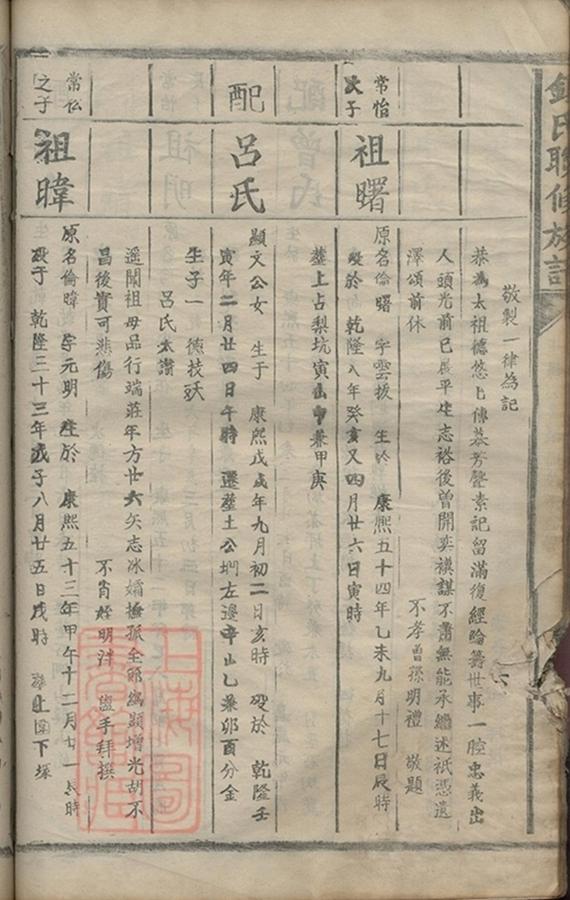 鍾氏聯修族譜
敬製一律為記
恭為太祖德悠上傳恭芳聲素記留滿復經綸籌世事一腔忠義出
人頭光前已展平生志裕後曾開奕禩謀不肅無能承繼述祇憑遺
澤頌前休 不孝曾孫明禮 敬題
常怡
次子
祖曙
原名倫曙 字雲拔 生於 康熙五十四年乙未九月十七日辰時
歿於 乾隆八年癸亥又四月廿六日寅時
塟上占梨坑寅山申兼甲庚
配
呂氏
顯文公女 生于 康熙戊戌年九月初二日亥時 歿於 乾隆壬
寅年二月廿四日午時 遷塟土公坜左邊辛山乙兼卯酉分金
生子一 德技跃
呂氏太讚
遥聞祖母品行端莊年方廿六矢志冰孀撫孤全節為顯增光胡不
昌後實可悲傷 不肖姪明泮 盥手拜撰
常伀
之子
祖暐
原名倫暐 字元明 生於 康熙五十三年甲午十二月廿一辰時
歿于 乾隆三十三年戊子八月廿五日戌時 塟上圍下塚